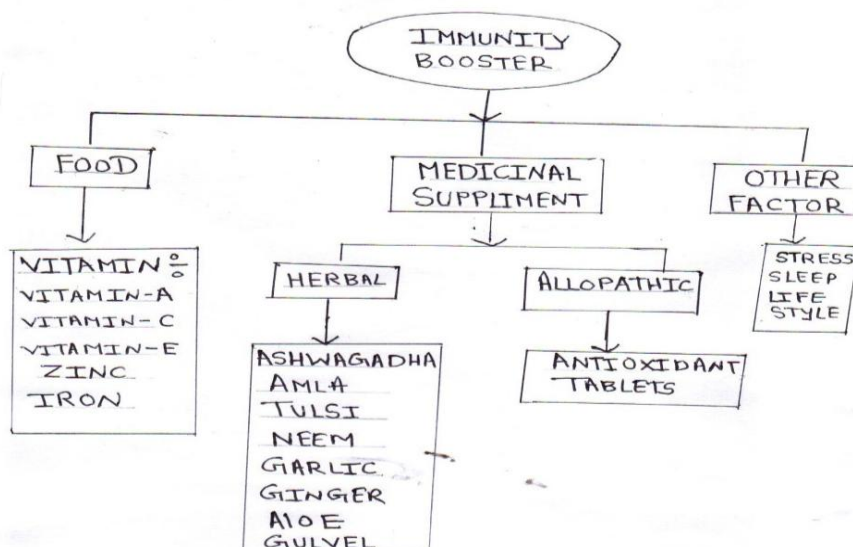 IMMUNITY
BOOSTER
FOOD
MEDICINAL
SUPPLIMENT
OTHER
FACTOR
VITAMIN÷
VITAMIN-A
VITAMIN-C
VITAMIN-E
ZINC
IRON
HERBAL
ALLOPATHIC
STRESS
SLEEP
LIFE
STYLE
ASHWAGADHA
AMLA
TULSI
NEEM
GARLIC
GINGER
AlOE
GULVEL
ANTIOXIDANT
TABLETS